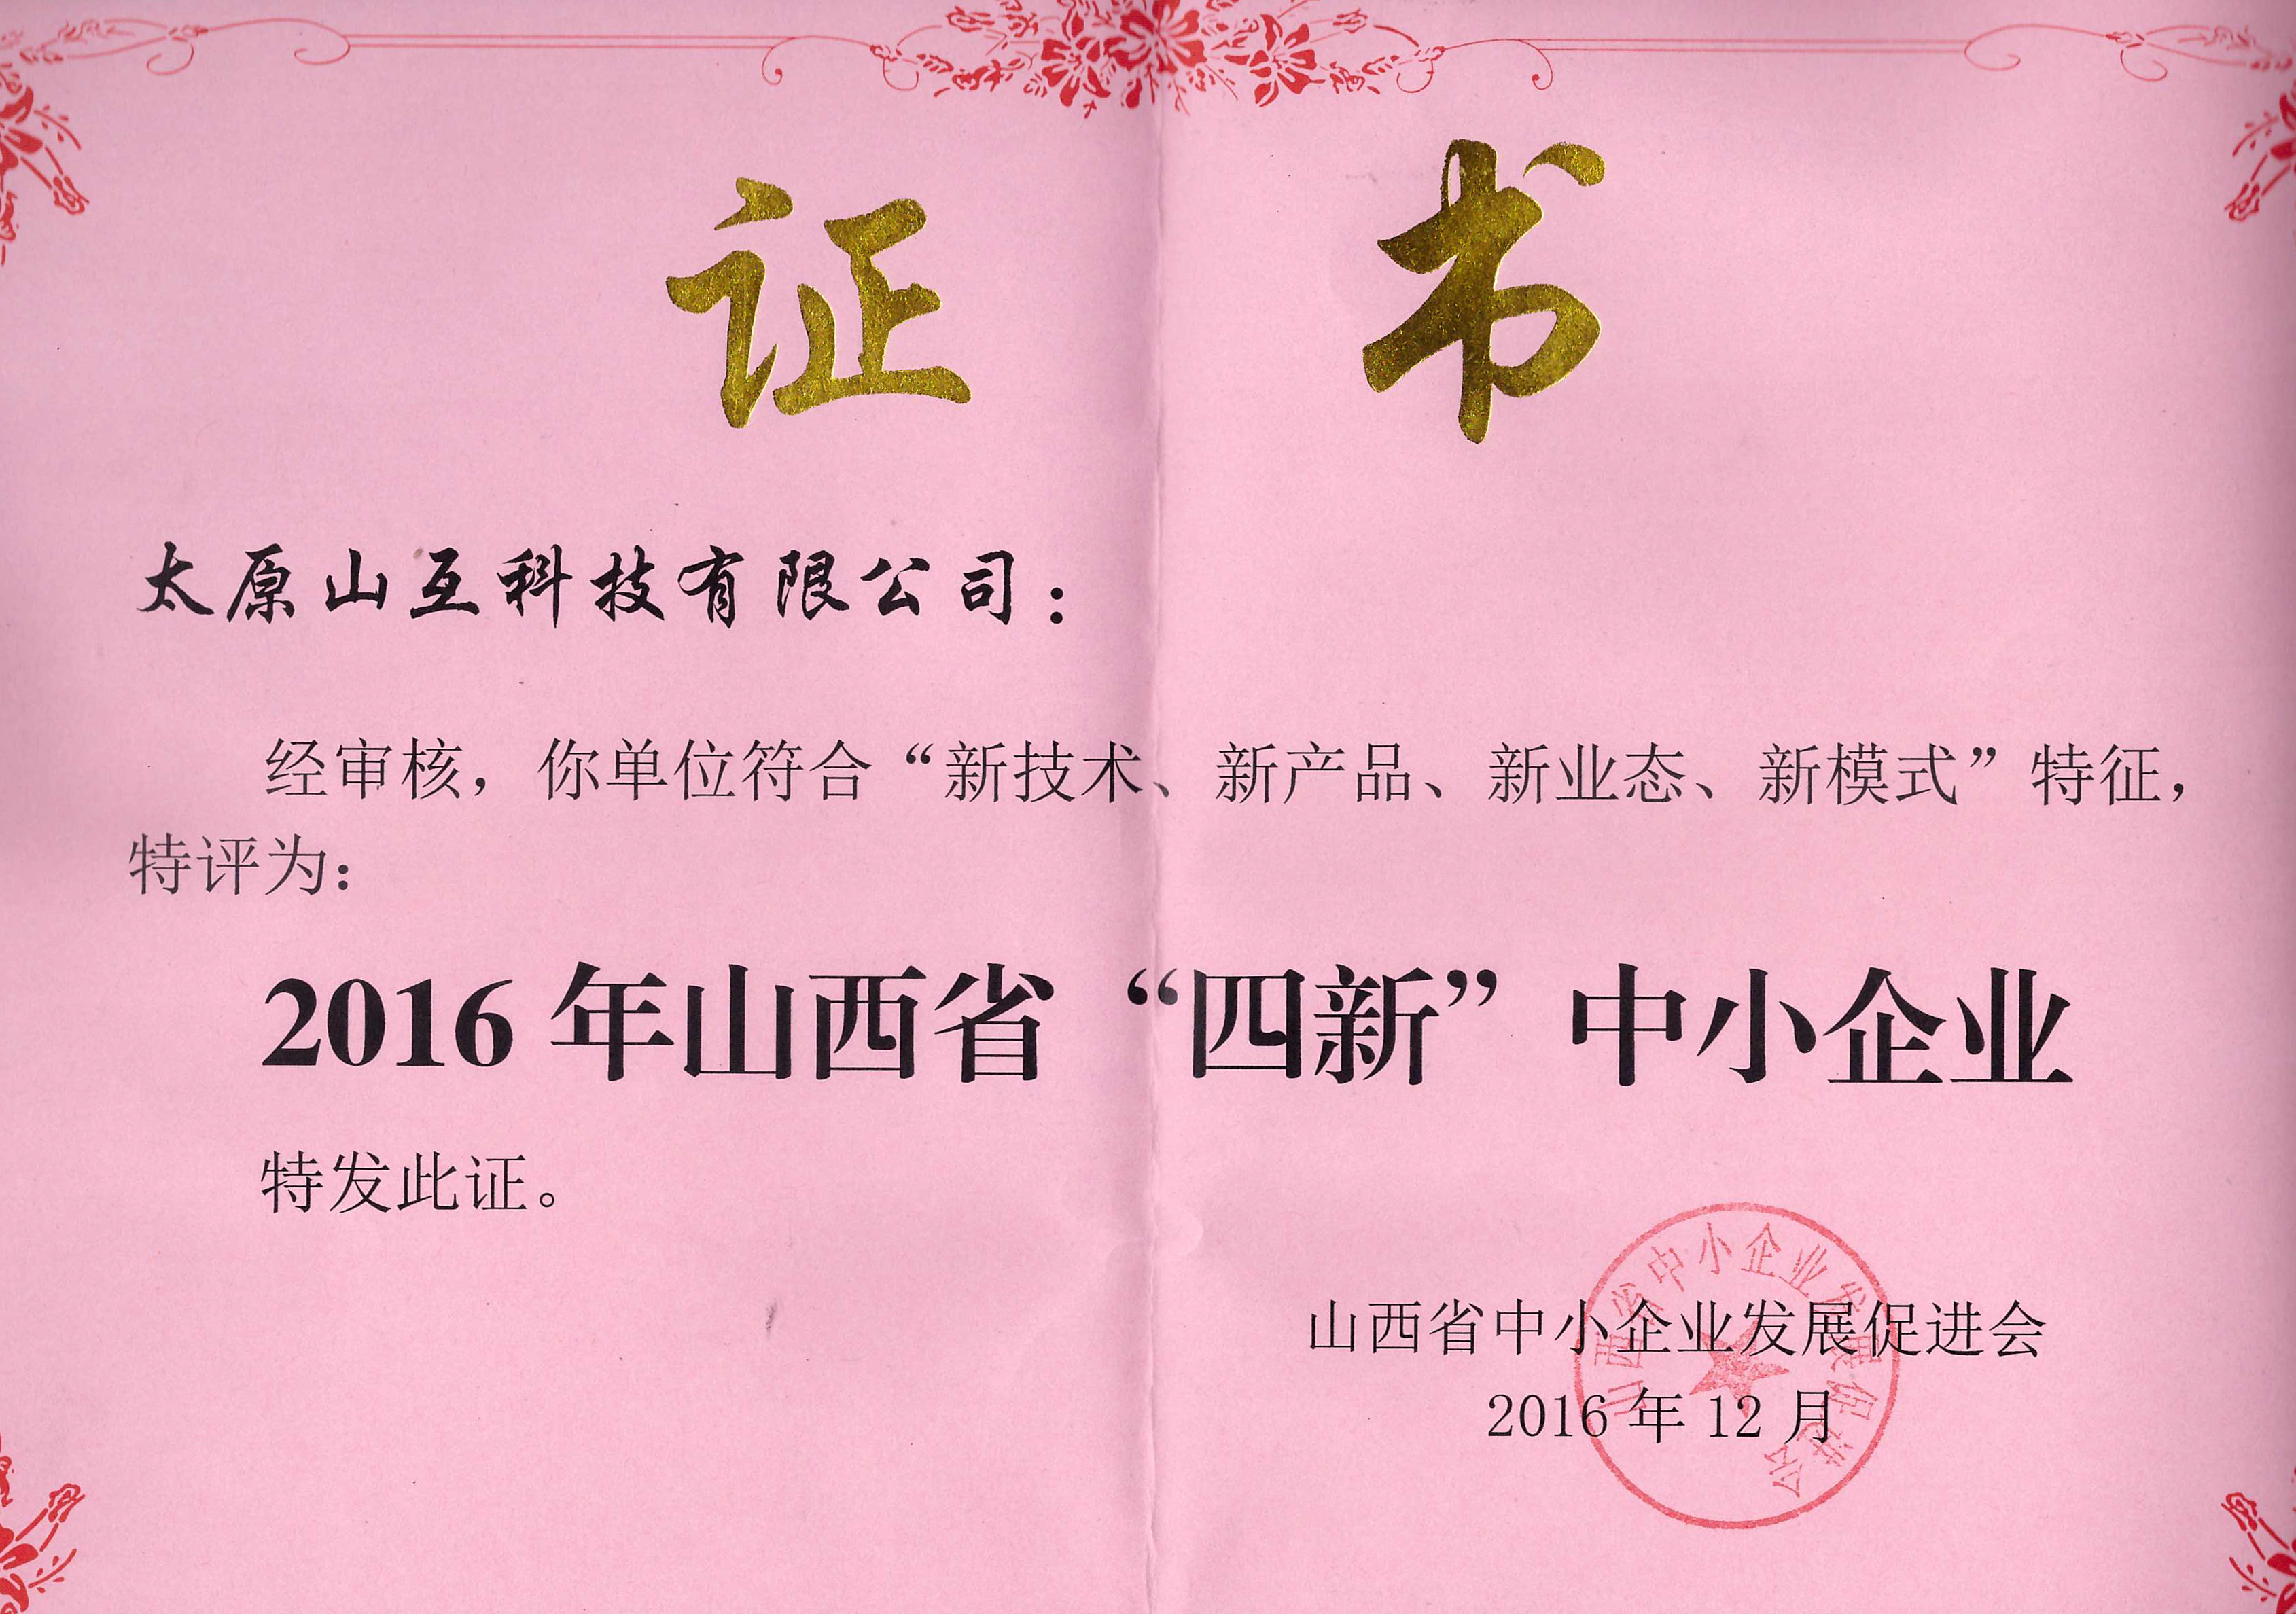 证书
太原山互科技有限公司：
经审核，你单位符合“新技术、新产品、新业态、新模式”特征，
特评为：
2016年山西省“四新”中小企业
特发此证。
山西省中小企业发展促进会
2016年12月
山西省中小企业发展促进会